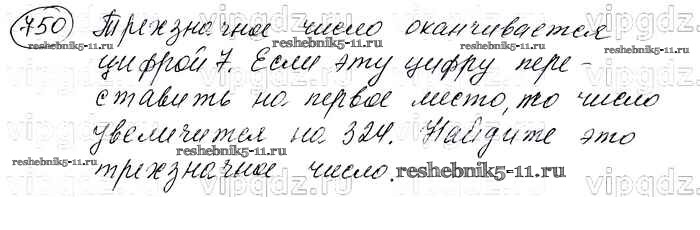 750 Трехзначное число оканчивается
reshebnik5-11.ru reshebnik5-11.ru
цифрой 7. Если эту цифру пере-
ставить на первое место, то число
увеличится на 324. Найдите это
reshebnik5-11.ru
трехзначное число.
reshebnik5-11.ru
vipgdz.ru